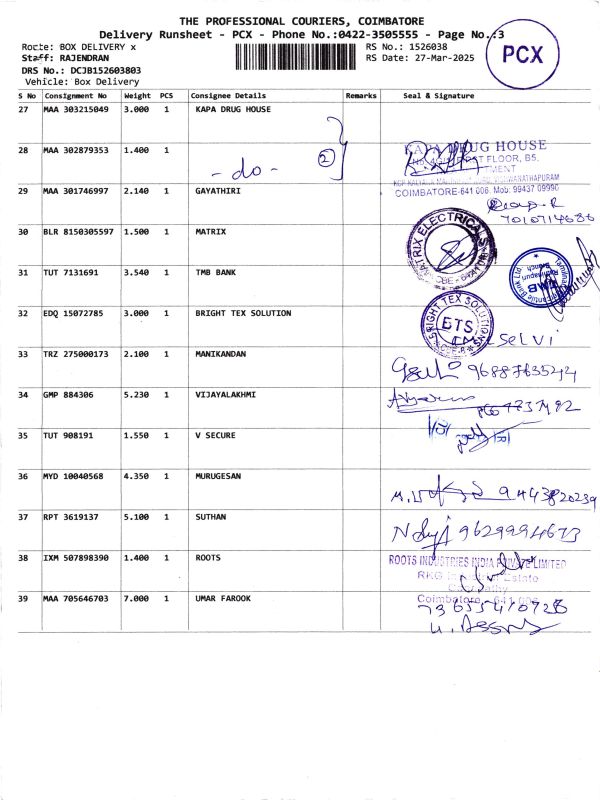 THE PROFESSIONAL COURIERS, COIMBATORE
Delivery Runsheet - PCX - Phone No.:0422-3505555 - Page No.:3
Route: BOX DELIVERY x
RS No.: 1526038
Staff: RAJENDRAN
RS Date: 27-Mar-2025
DRS No.: DCJB152603803
Vehicle: Box Delivery
PCX
S No Consignment No Weight PCS Consignee Details Remarks Seal & Signature
27 MAA 303215049 3.000 1 KAPA DRUG HOUSE
28 MAA 302879353 1.400 1 - do - 2
KAPA DRUG HOUSE
FIRST FLOOR, B5.
COIMBATORE-641 006. Mob: 99437 09990
29 MAA 301746997 2.140 1 GAYATHIRI
30 BLR 8150305597 1.500 1 MATRIX
MATRIX ELECTRICALS
31 TUT 7131691 3.540 1 TMB BANK
TMB
32 EDQ 15072785 3.000 1 BRIGHT TEX SOLUTION
BRIGHT TEX SOLUTIONS
BTS
Selvi
33 TRZ 275000173 2.100 1 MANIKANDAN
34 GMP 884306 5.230 1 VIJAYALAKHMI
35 TUT 908191 1.550 1 V SECURE
36 MYD 10040568 4.350 1 MURUGESAN
37 RPT 3619137 5.100 1 SUTHAN
9629994673
38 IXM 507898390 1.400 1 ROOTS
ROOTS INDUSTRIES INDIA PRIVATE LIMITED
RKG Industrial Estate
39 MAA 705646703 7.000 1 UMAR FAROOK
Coimbatore